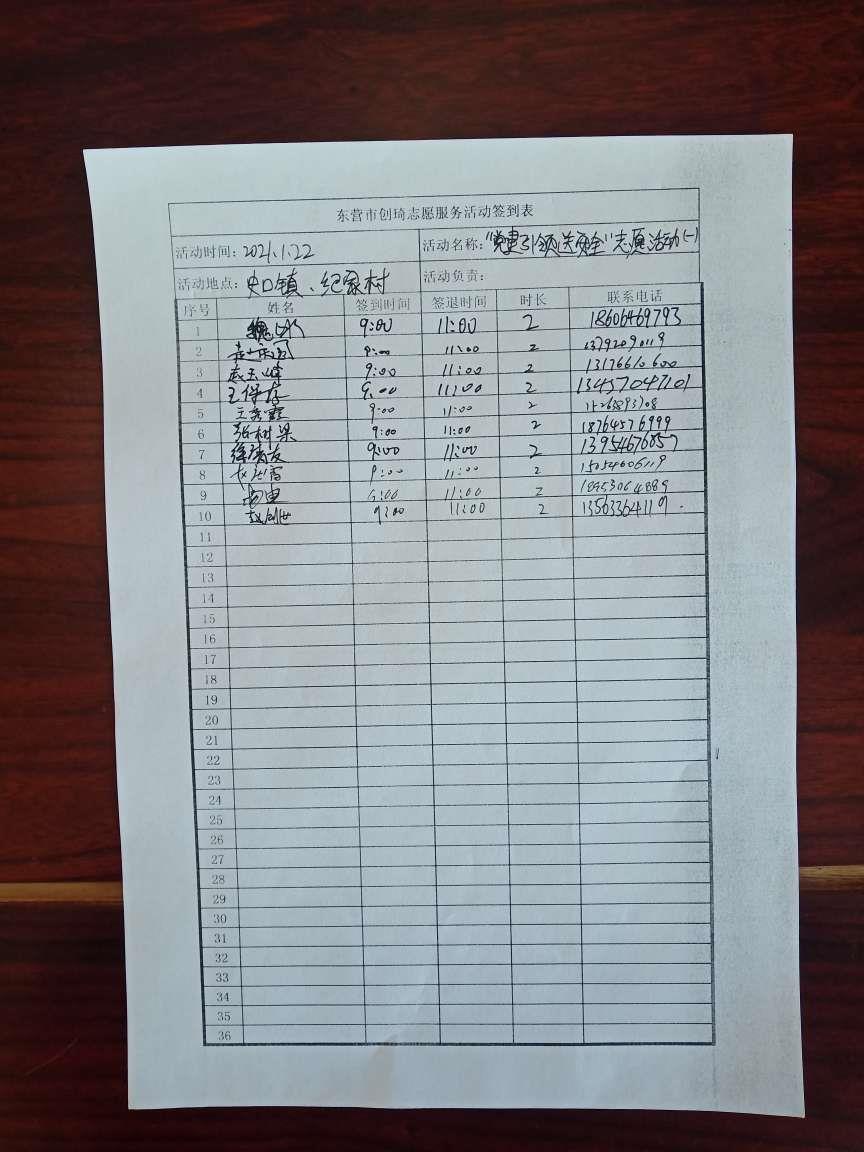 东营市创琦志愿服务活动签到表
活动时间：2021.1.22 活动名称：“党建引领送安全”志愿活动(一)
活动地点：史口镇、纪家村 活动负责：
序号 姓名 签到时间 签退时间 时长 联系电话
1 9:00 11:00 2 18606469793
2 9:00 11:00 2
3 赵玉峰 9:00 11:00 2 13176610600
4 王保存 9:00 11:00 2 13457047101
5 9:00 11:00 2
6 张树梁 9:00 11:00 2 18764576999
7 9:00 11:00 2 13954676857
8 9:00 11:00 2 15054606119
9 9:00 11:00 2 18953064889
10 9:00 11:00 2 13563364119.
11
12
13
14
15
16
17
18
19
20
21
22
23
24
25
26
27
28
29
30
31
32
33
34
35
36